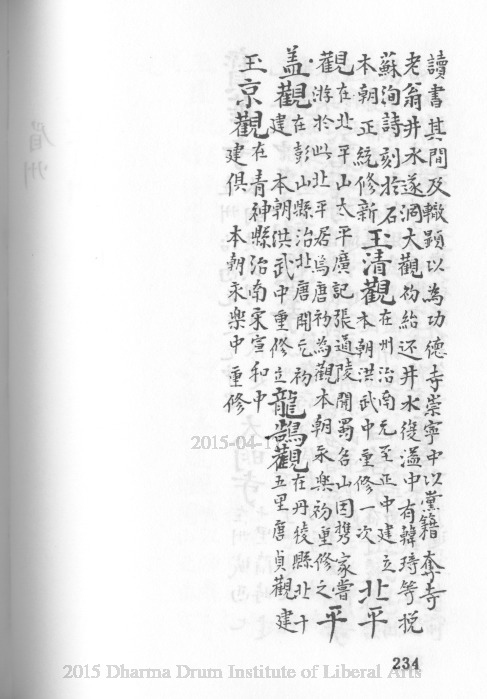 讀書其間及轍顕以為功德寺崇寧中以黨籍奪寺
老翁井水遂涸大觀初給还井水復溢中有韓琦等挽
蘇洵詩刻於石
本朝正統修新
玉清觀
在州治南元至正中建立
本朝洪武中重修一次
北平
觀
在北平山太平廣記張道陵開蜀名山因携家嘗
游於此北平居焉唐初為觀本朝永樂初重修之
平
盖觀
在彭山縣治北唐開元初
建 本朝洪武中重修立
龍鵠觀
在丹稜縣北十
五里唐貞觀建
玉京觀
在青神縣治南宋宣和中
建俱 本朝永樂中重修
眉州
234
2015 Dharma Drum Institute of Liberal Arts